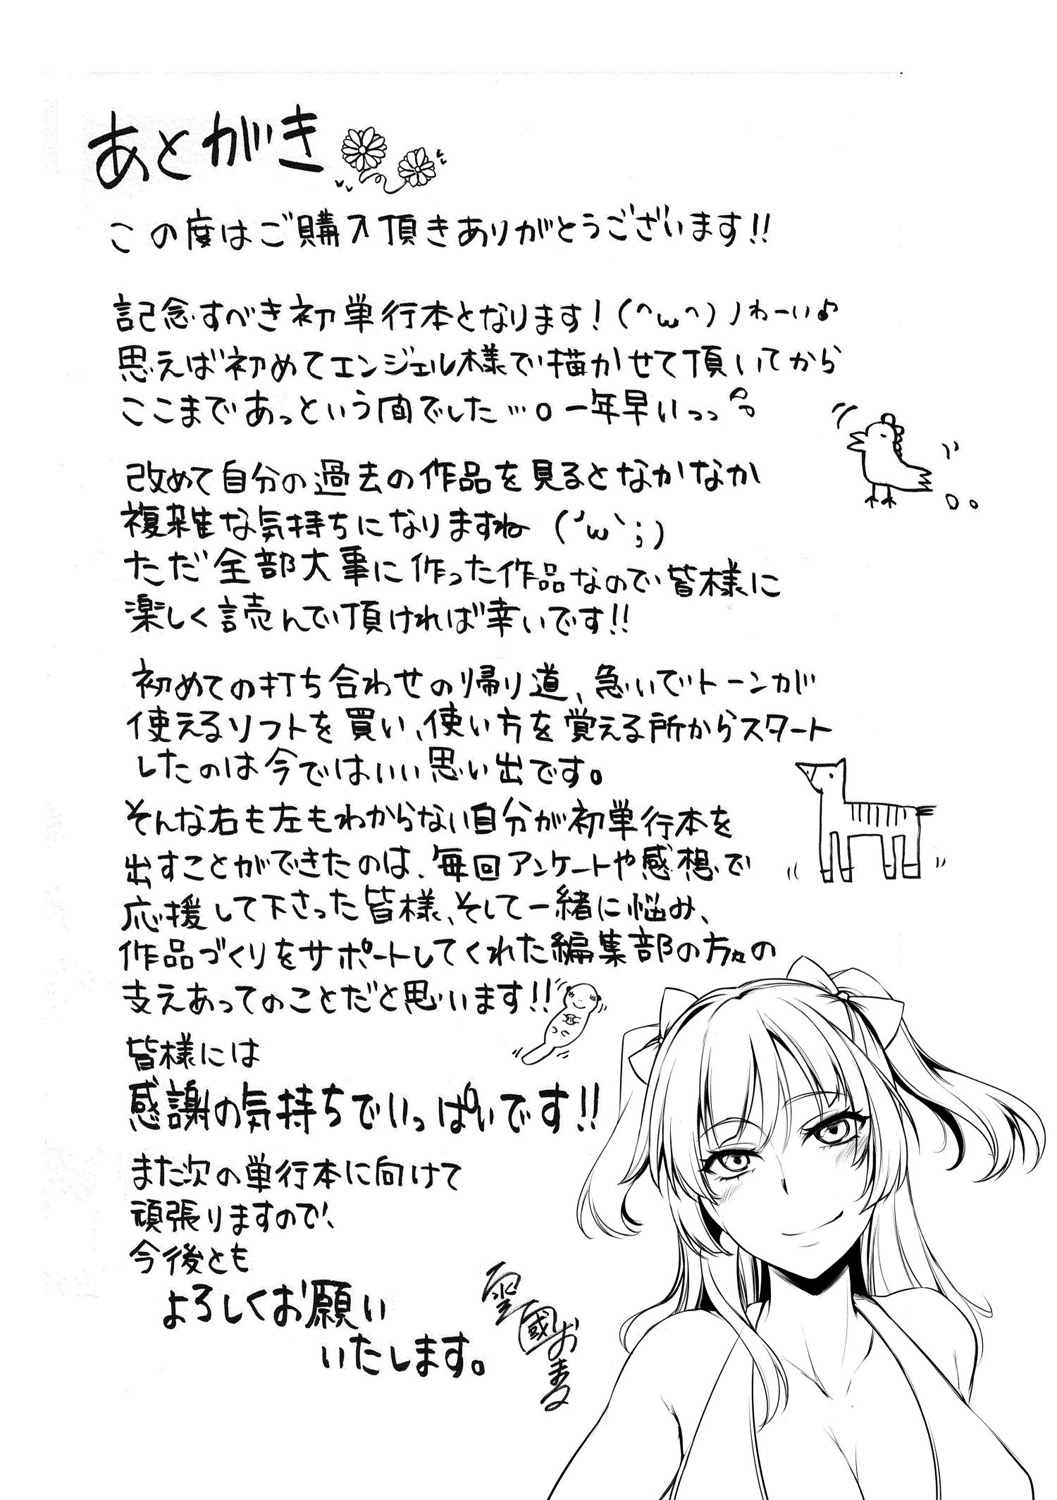 あとがき
この度はご購入頂きありがとうございます!!
記念すべき初単行本となります!(^ω^)ノわーい♪
思えば初めてエンジェル様で描かせて頂いてから
ここまであっという間でした…。一年早いっっ
改めて自分の過去の作品を見るとなかなか
複雑な気持ちになりますね(´ω`;)
ただ全部大事に作った作品なので皆様に
楽しく読んで頂ければ幸いです!!
初めての打ち合わせの帰り道、急いでトーンが
使えるソフトを買い、使い方を覚える所からスタート
したのは今ではいい思い出です。
そんな右も左もわからない自分が初単行本を
出すことができたのは、毎回アンケートや感想で
応援して下さった皆様、そして一緒に悩み、
作品づくりをサポートしてくれた編集部の方々の
支えあってのことだと思います!!
皆様には
感謝の気持ちでいっぱいです!!
また次の単行本に向けて
頑張りますので、
今後とも
よろしくお願い
いたします。